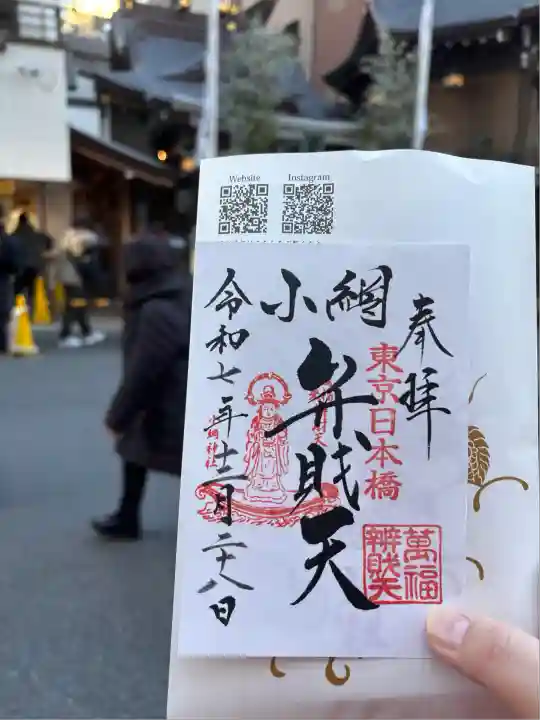 Website
Instagram
奉拝
東京日本橋
小網
弁財天
萬福
辨財天
小網神社
令和七年十二月二十八日